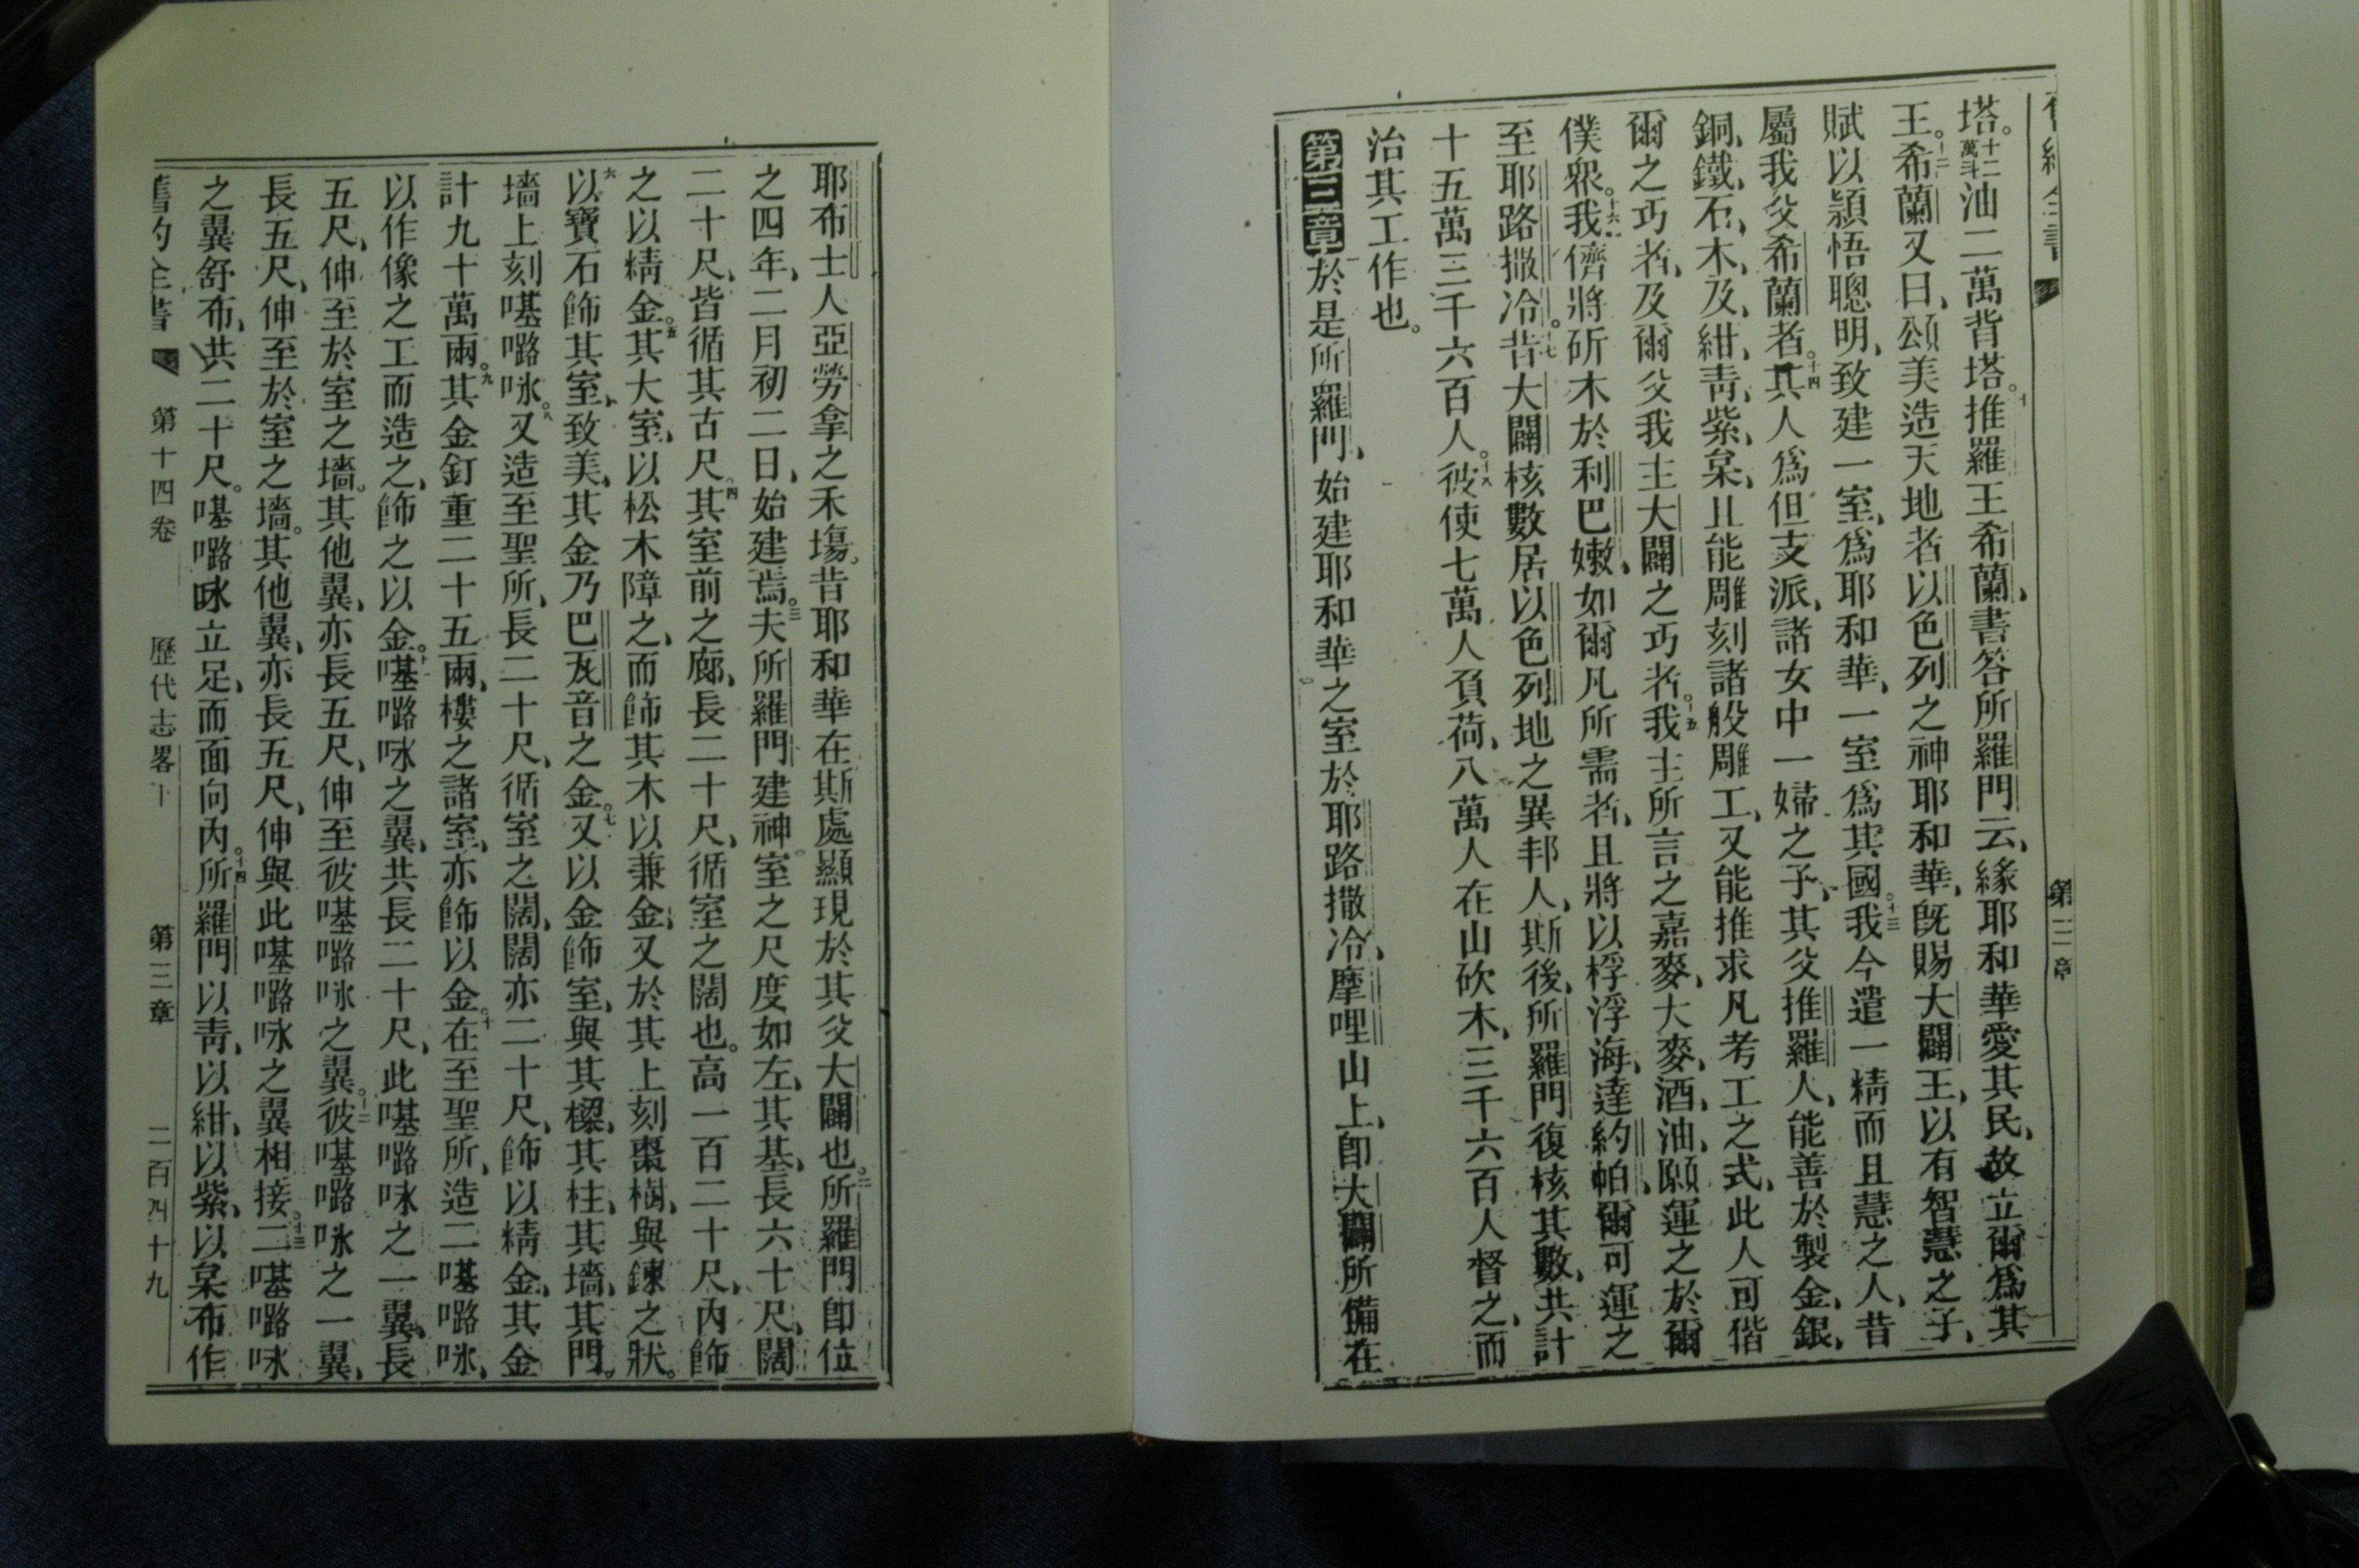 第二章
塔。十二萬油二萬背塔。推羅王希蘭、書答所羅門云、緣耶和華愛其民、故立爾爲其
王。十二希蘭又曰、頌美造天地者以色列之神耶和華、既賜大闢王、以有智慧之子、
賦以穎悟聰明、致建一室、爲耶和華、一室爲其國。十三我今遣一精而且慧之人、昔
屬我父希蘭者。十四其人爲但支派、諸女中一婦之子、其父推羅人、能善於製金、銀、
銅、鐵、石、木、及紺、靑、紫、枲、且能雕刻諸般雕工、又能推求凡考工之式、此人可偕
爾之巧者、及爾父我主大闢之巧者。十五我主所言之嘉麥、大麥、酒、油、願運之於爾
僕衆。十六我儕將斫木於利巴嫩、如爾凡所需者、且將以桴浮海、達約帕、爾可運之
至耶路撒冷。十七昔大闢核數居以色列地之異邦人、斯後、所羅門復核其數、共計
十五萬三千六百人。十八彼使七萬人負荷、八萬人在山砍木、三千六百人督之、而
治其工作也。
第三章於是所羅門、始建耶和華之室於耶路撒冷、摩哩山上、卽大闢所備在
耶布士人亞勞拿之禾塲。昔耶和華在斯處顯現於其父大闢也。二所羅門卽位
之四年、二月初二日、始建焉。三夫所羅門建神室之尺度如左、其基、長六十尺、闊
二十尺、皆循其古尺。四其室前之廊、長二十尺、循室之闊也。高一百二十尺、內飾
之以精金。五其大室、以松木障之、而飾其木以兼金、又於其上刻棗樹、與鍊之狀。
六以寶石飾其室、致美、其金乃巴瓦音之金。七又以金飾室、與其樑、其柱、其墻、其門。
墻上刻𠼻㖡咏。八又造至聖所、長二十尺、循室之闊、闊亦二十尺、飾以精金、其金
計九十萬兩。九其金釘重二十五兩、樓之諸室、亦飾以金。十在至聖所、造二𠼻㖡咏、
以作像之工而造之、飾之以金。十一𠼻㖡咏之翼、共長二十尺、此𠼻㖡咏之一翼、長
五尺、伸至於室之墻。其他翼、亦長五尺、伸至彼𠼻㖡咏之翼。十二彼𠼻㖡咏之一翼、
長五尺、伸至於室之墻。其他翼、亦長五尺、伸與此𠼻㖡咏之翼相接。十三二𠼻㖡咏
之翼舒布、共二十尺。𠼻㖡咏立足、而面向內。十四所羅門以靑、以紺、以紫、以枲布作
舊約全書 第十四卷 歷代志畧下 第三章 二百四十九